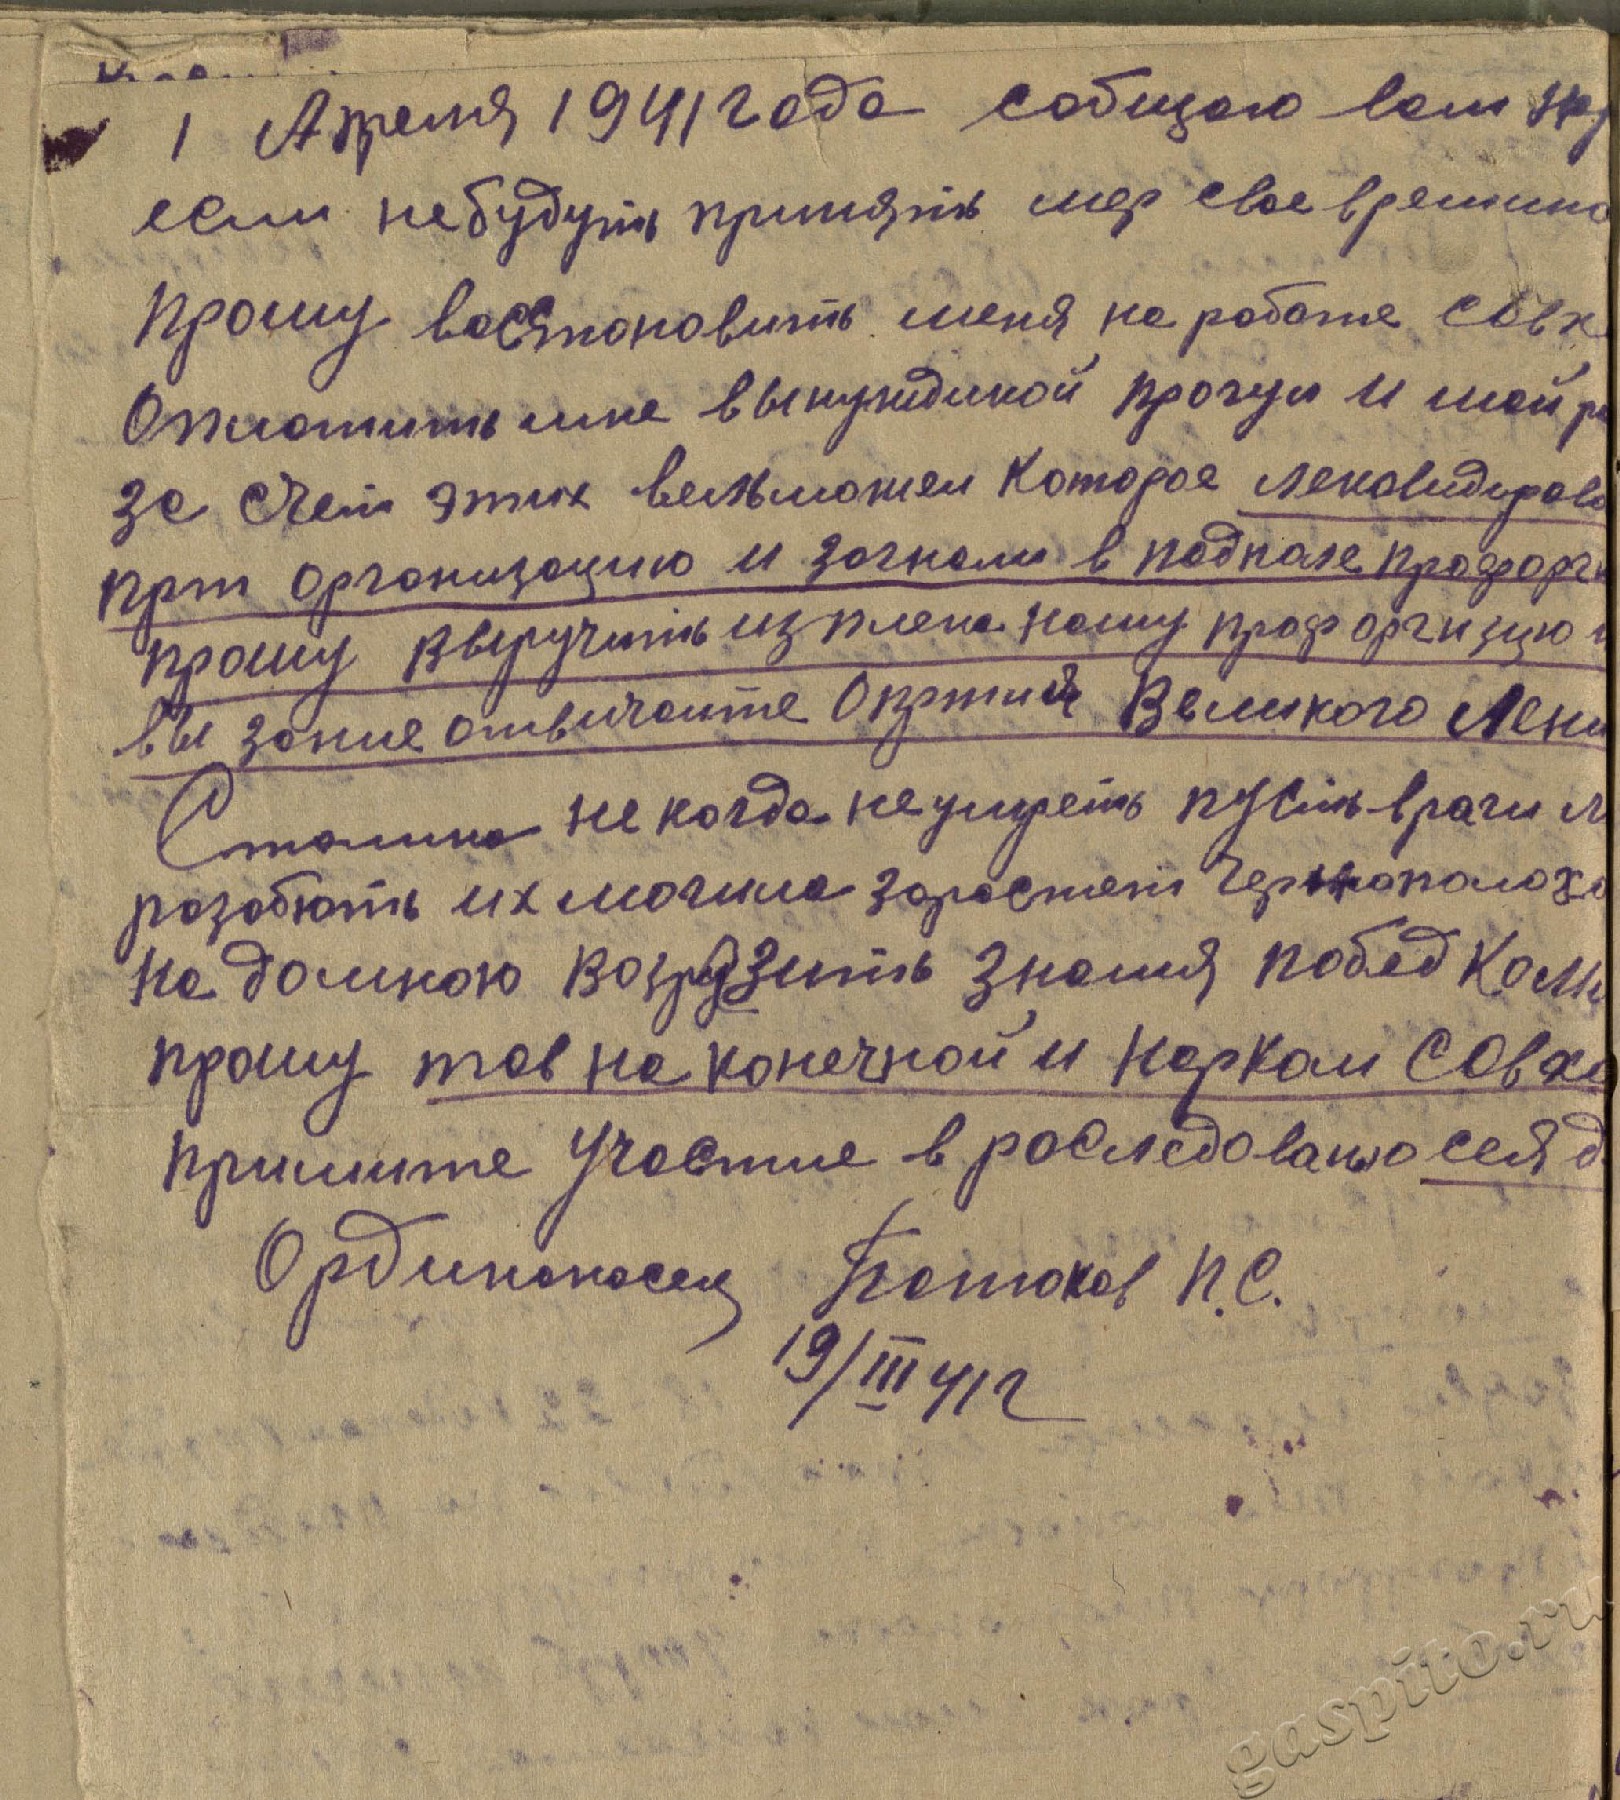 1 Апреля 1941 года собщаю вам
если небудуть принять мер свое времино
прошу восстоновить меня на работе Совх
Опломтить мне вынуждиной прогул и мой
за счет этих вельможен которое лековидирово
прт организацию и загнали в подполе профорг
прошу выручить из плена нашу профоргизцю
вы зание отвичаите О пртий Великого Лени
Сталина не когда неумреть пусть враги
розобють их могила заростет Чертополохо
на домною возрузить Знамя побед Комм
прошу тов на конечной и нарком Совхо
примите Участие в роследованю сея д
Ординоносец Потоков П.С.
19/III 41 г
gaspito.ru